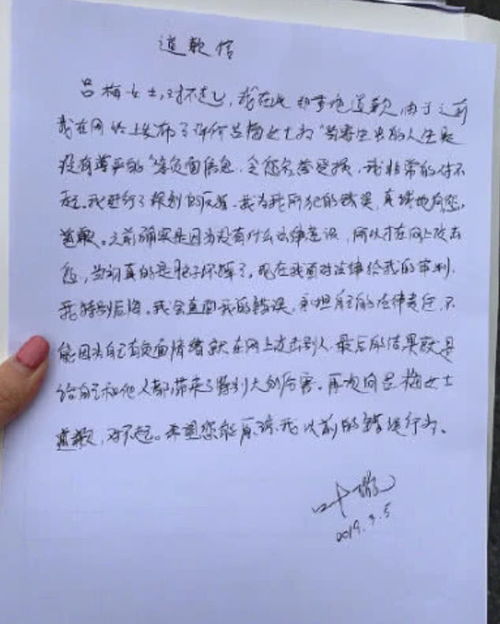 道歉信
吕梅女士，对不起，我在此郑重地道歉，由于之前
我在网络上发布了评价吕梅女士为“当寄生虫的人生是
没有尊严的”等负面信息，令您名誉受损，我非常的对不
起。我进行了深刻的反省，我为我所犯的错误，真诚地向您
道歉。之前确实是因为没有什么法律意识，所以才在网上攻击
您，当初真的是脑子坏掉了，现在我面对法律给我的审判，
我特别后悔。我会直面我的错误，承担自己的法律责任，不
能因为自己有负面情绪就在网上攻击别人，最后的结果就是
给自己和他人都带来了特别大的伤害。再次向吕梅女士
道歉，对不起。希望您能原谅我以前的错误行为。
叶璇
2019.3.5